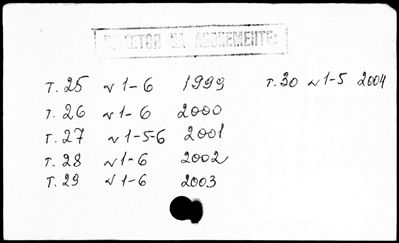 ИМЕЕТСЯ НА АБОНЕМЕНТЕ:
т. 25 № 1-6 1999 т. 30 № 1-5 2004
т. 26 № 1-6 2000
т. 27 № 1-5-6 2001
т. 28 № 1-6 2002
т. 29 № 1-6 2003